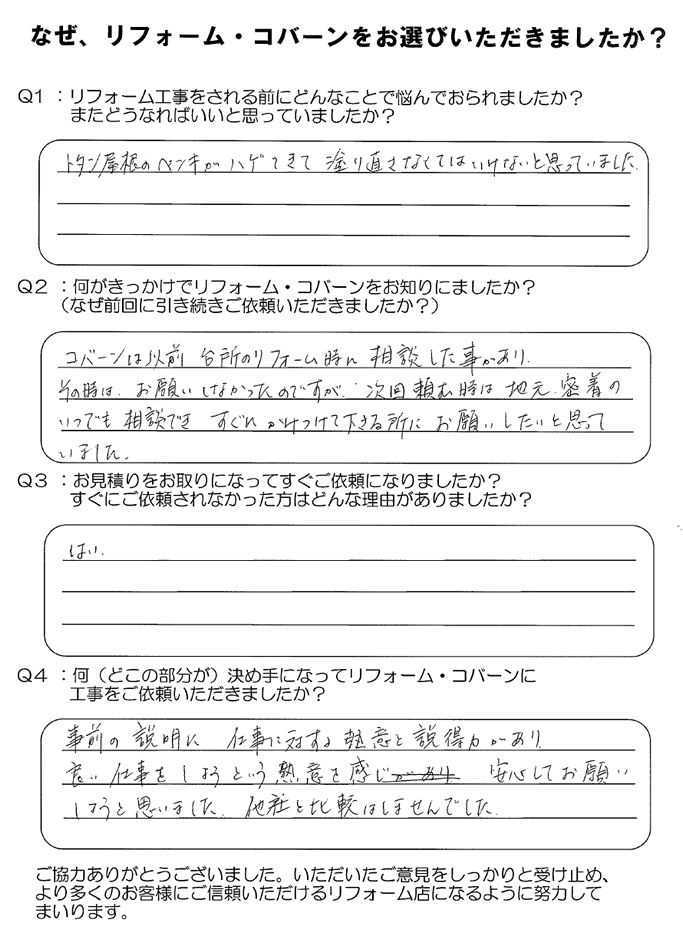 なぜ、リフォーム・コバーンをお選びいただきましたか？
Q1 ：リフォーム工事をされる前にどんなことで悩んでおられましたか？
またどうなればいいと思っていましたか？
トタン屋根のペンキがハゲてきて 塗り直さなくてはいけないと思っていました。
Q2 ：何がきっかけでリフォーム・コバーンをお知りにましたか？
（なぜ前回に引き続きご依頼いただきましたか？）
コバーンは以前 台所のリフォーム時に 相談した事があり、
その時は、お願いしなかったのですが、次回頼む時は 地元 密着の
いつでも 相談でき すぐに かけつけて下さる所に お願いしたいと思って
いました。
Q3 ：お見積りをお取りになってすぐご依頼になりましたか？
すぐにご依頼されなかった方はどんな理由がありましたか？
はい。
Q4 ：何（どこの部分が）決め手になってリフォーム・コバーンに
工事をご依頼いただきましたか？
事前の 説明に 仕事に対する 熱意と 説得力があり
良い 仕事を しようという 熱意を 感じがあり 安心してお願い
しようと思いました。他社と比較はしませんでした。
ご協力ありがとうございました。いただいたご意見をしっかりと受け止め、
より多くのお客様にご信頼いただけるリフォーム店になるように努力して
まいります。